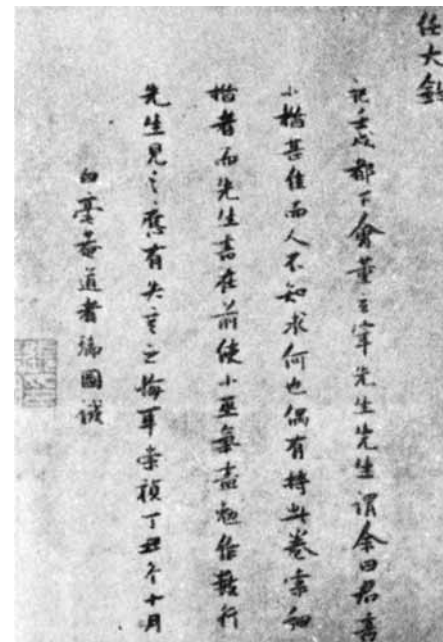 任大
記壬戌都下會董玄宰先生先生謂余曰君書
小楷甚佳而人不知求何也偶有持此卷索細
楷者而先生書在前使小巫氣盡勉作數行
先生見之應有失言之悔耳崇禎丁丑冬十月
白毫菴道者瑞圖識